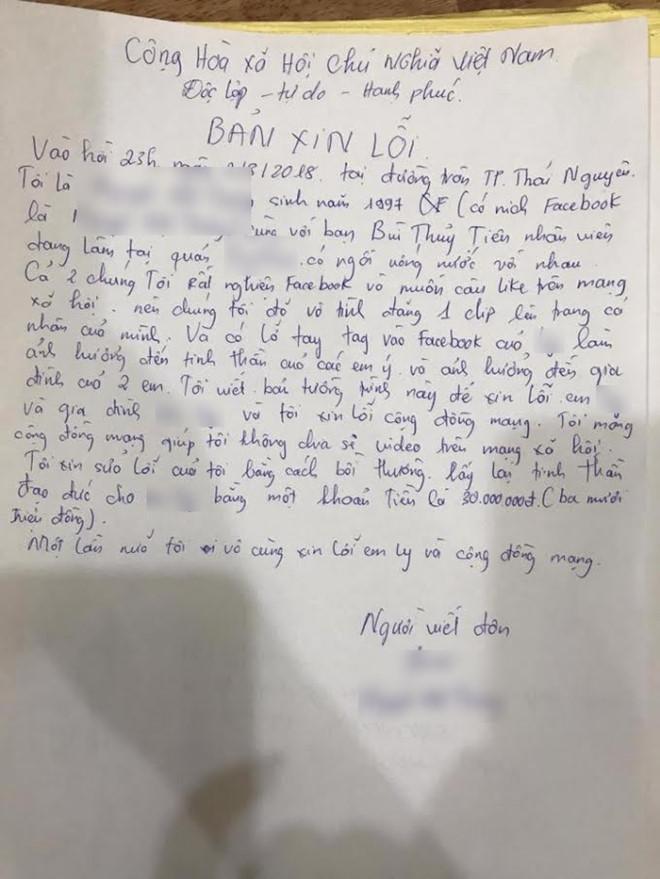 Cộng Hoà xã Hội chủ Nghĩa việt Nam
Độc lập - tự do - Hạnh phúc.
BẢN XIN LỖI
Vào hồi 23h /8/2018. tại đường tròn TP. Thái Nguyên.
Tôi là sinh năm 1997 (có nich Facebook
là cùng với bạn Bùi Thuỷ Tiên nhân viên
đang làm tại quán có ngồi uống nước với nhau
Cả 2 chúng Tôi Rất nghiện Facebook và muốn câu like trên mạng
xã hội. nên chúng tôi đã vô tình đăng 1 clip lên trang cá
nhân của mình. Và có lỡ tay tag vào Facebook của làm
ảnh hưởng đến tinh thần của các em ý và ảnh hưởng đến gia
đình của 2 em. Tôi viết bản tường trình này để xin lỗi em
và gia đình và tôi xin lỗi cộng đồng mạng. Tôi mong
cộng đồng mạng giúp tôi không chia sẻ video trên mạng xã hội.
Tôi xin sửa lỗi của tôi bằng cách bồi thường. lấy lại tinh thần
đạo đức cho bằng một khoản Tiền là 30.000.000đ. (ba mươi
triệu đồng).
Một lần nữa tôi vô cùng xin lỗi em ly và cộng đồng mạng.
Người viết đơn